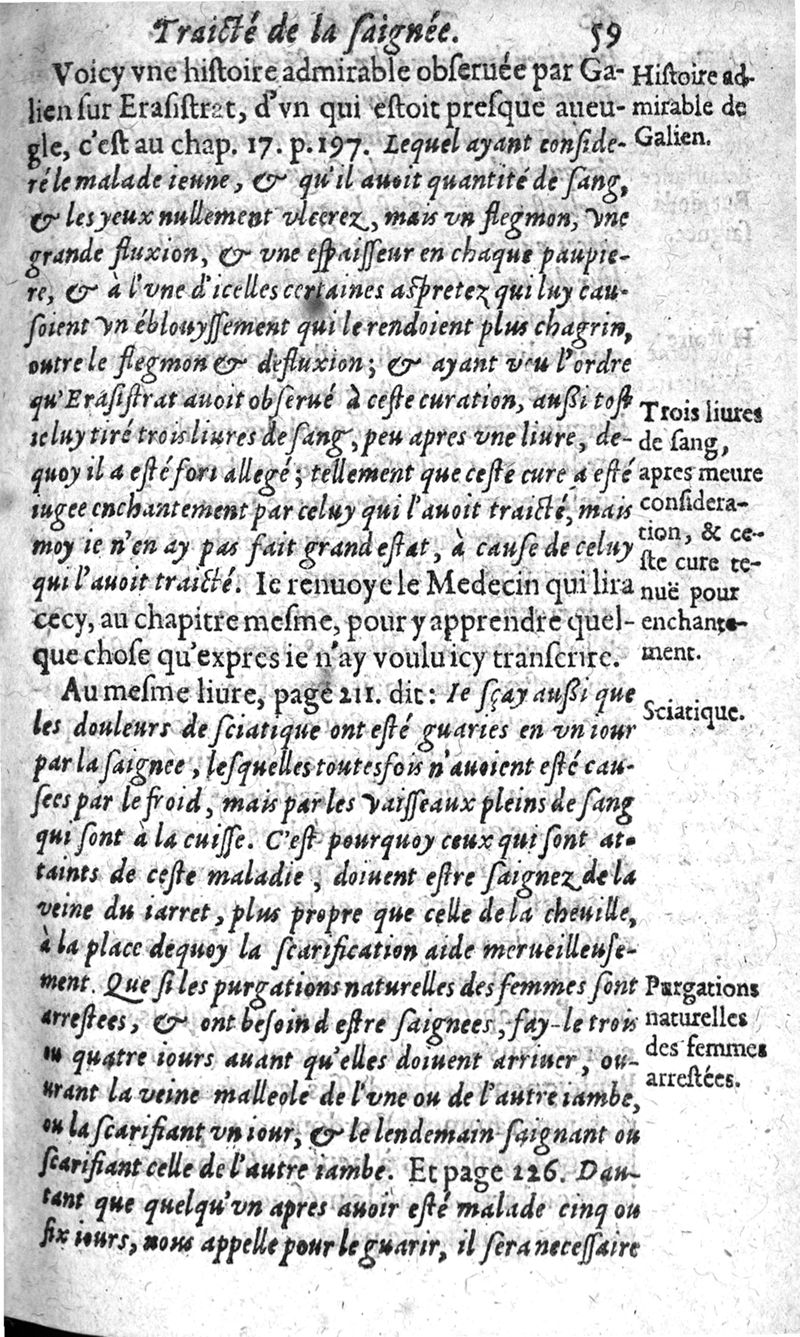 Traicté de la ſaignée. 59
Voicy vne hiſtoire admirable obſeruée par Ga-
lien ſur Eraſiſtrat, d'vn qui eſtoit preſque aueu-
gle, c'eſt au chap. 17. p. 197. Lequel ayant conſide-
ré le malade ieune, & qu'il auoit quantité de ſang,
& les yeux nullement vlcerez, mais vn flegmon, vne
grande fluxion, & vne eſpaiſſeur en chaque paupie-
re, & à l'vne d'icelles certaines aſpretez qui luy cau-
ſoient vn éblouyſſement qui le rendoient plus chagrin,
outre le flegmon & defluxion; & ayant veu l'ordre
qu'Eraſiſtrat auoit obſerué à ceſte curation, auſſi toſt
ie luy tiré trois liures de ſang, peu apres vne liure, de-
quoy il a eſté fort allegé; tellement que ceſte cure a eſté
iugee enchantement par celuy qui l'auoit traicté, mais
moy ie n'en ay pas fait grand eſtat, à cauſe de celuy
qui l'auoit traicté. Ie renuoye le Medecin qui lira
cecy, au chapitre meſme, pour y apprendre quel-
que choſe qu'expres ie n'ay voulu icy tranſcrire.
Au meſme liure, page 211. dit: Ie ſçay auſſi que
les douleurs de ſciatique ont eſté guaries en vn iour
par la ſaignee, leſquelles toutesfois n'auoient eſté cau-
ſees par le froid, mais par les vaiſſeaux pleins de ſang
qui ſont à la cuiſſe. C'eſt pourquoy ceux qui ſont at-
taints de ceſte maladie, doiuent eſtre ſaignez de la
veine du iarret, plus propre que celle de la cheuille,
à la place dequoy la ſcarification aide merueilleuſe-
ment. Que ſi les purgations naturelles des femmes ſont
arreſtees, & ont beſoin d eſtre ſaignees, fay-le trois
ou quatre iours auant qu'elles doiuent arriuer, ou-
urant la veine malleole de l'vne ou de l'autre iambe,
ou la ſcarifiant vn iour, & le lendemain ſaignant ou
ſcarifiant celle de l'autre iambe. Et page 226. Dau-
tant que quelqu'vn apres auoir eſté malade cinq ou
ſix iours, nous appelle pour le guarir, il ſera neceſſaire
Hiſtoire ad-
mirable de
Galien.
Trois liures
de ſang,
apres meure
conſidera-
tion, & ce-
ſte cure te-
nuë pour
enchante-
ment.
Sciatique.
Purgations
naturelles
des femmes
arreſtées.